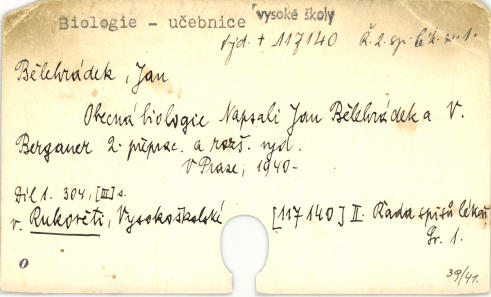 Biologie - učebnice vysoké školy
Výd. + 117140 Ř. 2. sp. lék. sv. 1.
Bělehrádek, Jan
Obecná biologie Napsali Jan Bělehrádek a V.
Bergauer 2. přeprac. a rozš. vyd.
V Praze, 1940-
Díl 1. 304, [III] s.
v. Rukověti, Vysokoškolské [117140] II. Řada spisů lékař.
Sv. 1.
39/41.